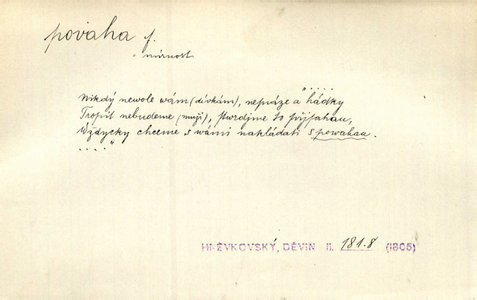 povaha f.
mírnost
"....
Nikdý newole wám (dívkám), nepráze a hádky
Tropit nebudeme (muži), stwrdjme to přjsahau,
Vždycky chceme s wámi nakládati s powahau.
...."
HNĚVKOVSKÝ, DĚVÍN II. 181.8 (1805)